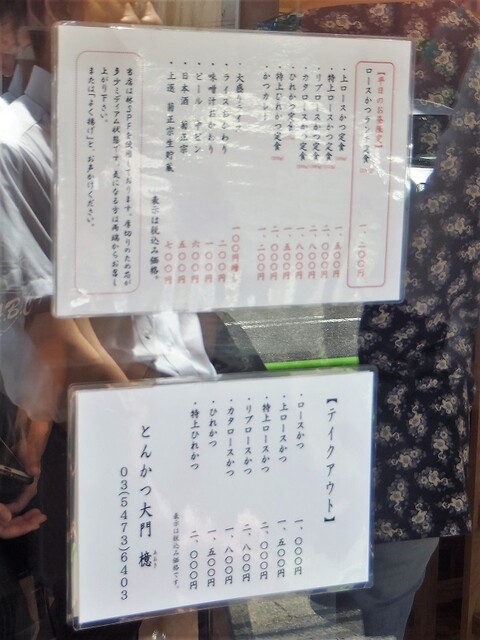 【平日のお昼限定】
ロースかつランチ定食
一、二〇〇円
・上ロースかつ定食 一、五〇〇円
・特上ロースかつ定食 二、〇〇〇円
・リブロースかつ定食 二、八〇〇円
・カタロースかつ定食 一、八〇〇円
・ひれかつ定食 一、五〇〇円
・特上ひれかつ定食 二、〇〇〇円
・かつカレー 一、二〇〇円
・大盛 一〇〇円増し
・ライスおかわり 二〇〇円
・味噌汁おかわり 一〇〇円
・ビール 六〇〇円
・日本酒 菊正宗 五〇〇円
・上選 菊正宗生貯蔵 七〇〇円
表示は税込み価格。
当店は林SPFを使用しております。厚切りのため芯が
多少ミディアム状態です。気になる方は両端からお召し
上がり下さい。
または「よく揚げ」と、お声かけください。
【テイクアウト】
・ロースかつ 一、〇〇〇円
・上ロースかつ 一、五〇〇円
・特上ロースかつ 二、〇〇〇円
・リブロースかつ 二、八〇〇円
・カタロースかつ 一、八〇〇円
・ひれかつ 一、五〇〇円
・特上ひれかつ 二、〇〇〇円
表示は税込み価格です。
とんかつ大門 檍
03(5473)6403